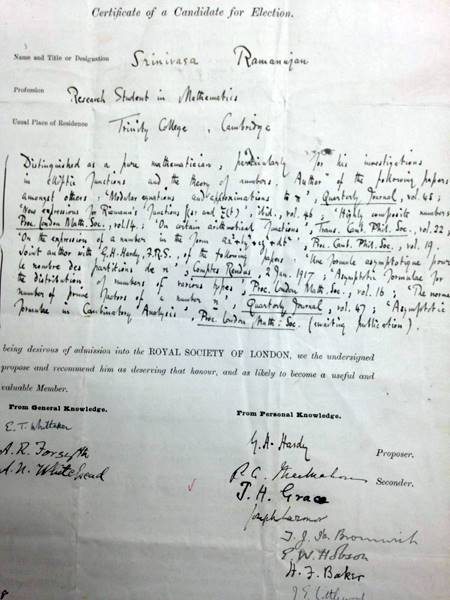 Certificate of a Candidate for Election.
Name and Title or Designation Srinivasa Ramanujan
Profession Research Student in Mathematics
Usual Place of Residence Trinity College, Cambridge
Distinguished as a pure mathematician, particularly for his investigations
in elliptic functions and the theory of numbers. Author of the following papers
amongst others: "Modular equations and approximations to π", Quarterly Journal, vol. 45;
"New expressions for Riemann's functions ξ(s) and Ξ(t)", ibid., vol. 46; "Highly composite numbers",
Proc. London Math. Soc., vol. 14; "On certain arithmetical functions", Trans. Camb. Phil. Soc., vol. 22;
"On the expression of a number in the form ax²+by²+cz²+dt²", Proc. Camb. Phil. Soc., vol. 19.
Joint author with G. H. Hardy, F.R.S., of the following papers: "Une formule asymptotique pour
le nombre des partitions de n", Comptes Rendus, 2 Jan. 1917; "Asymptotic formulae for
the distribution of numbers of various types", Proc. London Math. Soc., vol. 16; "The normal
number of prime factors of a number n", Quarterly Journal, vol. 47; "Asymptotic
formulae in Combinatory Analysis", Proc. London Math. Soc. (awaiting publication).
being desirous of admission into the ROYAL SOCIETY OF LONDON, we the undersigned
propose and recommend him as deserving that honour, and as likely to become a useful and
valuable Member.
From General Knowledge. From Personal Knowledge.
E. T. Whittaker G. H. Hardy Proposer.
A. R. Forsyth P. A. MacMahon Seconder.
A. N. Whitehead J. H. Grace
Joseph Larmor
T. J. I'A. Bromwich
E. W. Hobson
H. F. Baker
J. E. Littlewood
8